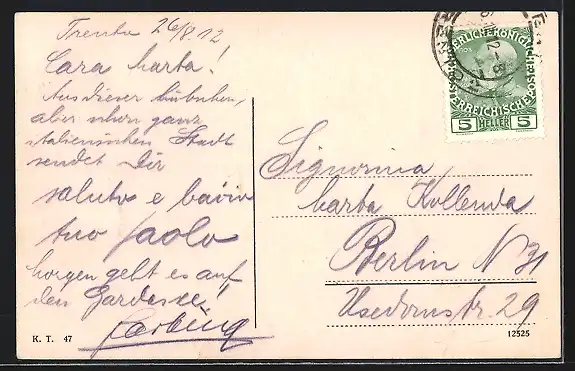 Trento 26/8.12
Cara Marta!
Aus dieser hübschen,
aber schon ganz
italienischen Stadt
sendet Dir
saluto e bacio
tuo Paolo
Morgen geht es auf
den Gardasee!
K. T. 47
ÖSTERREICHISCHE
5 HELLER 5
Signorina
Marta Kollenda
Berlin N 31
Usedomstr. 29
12525